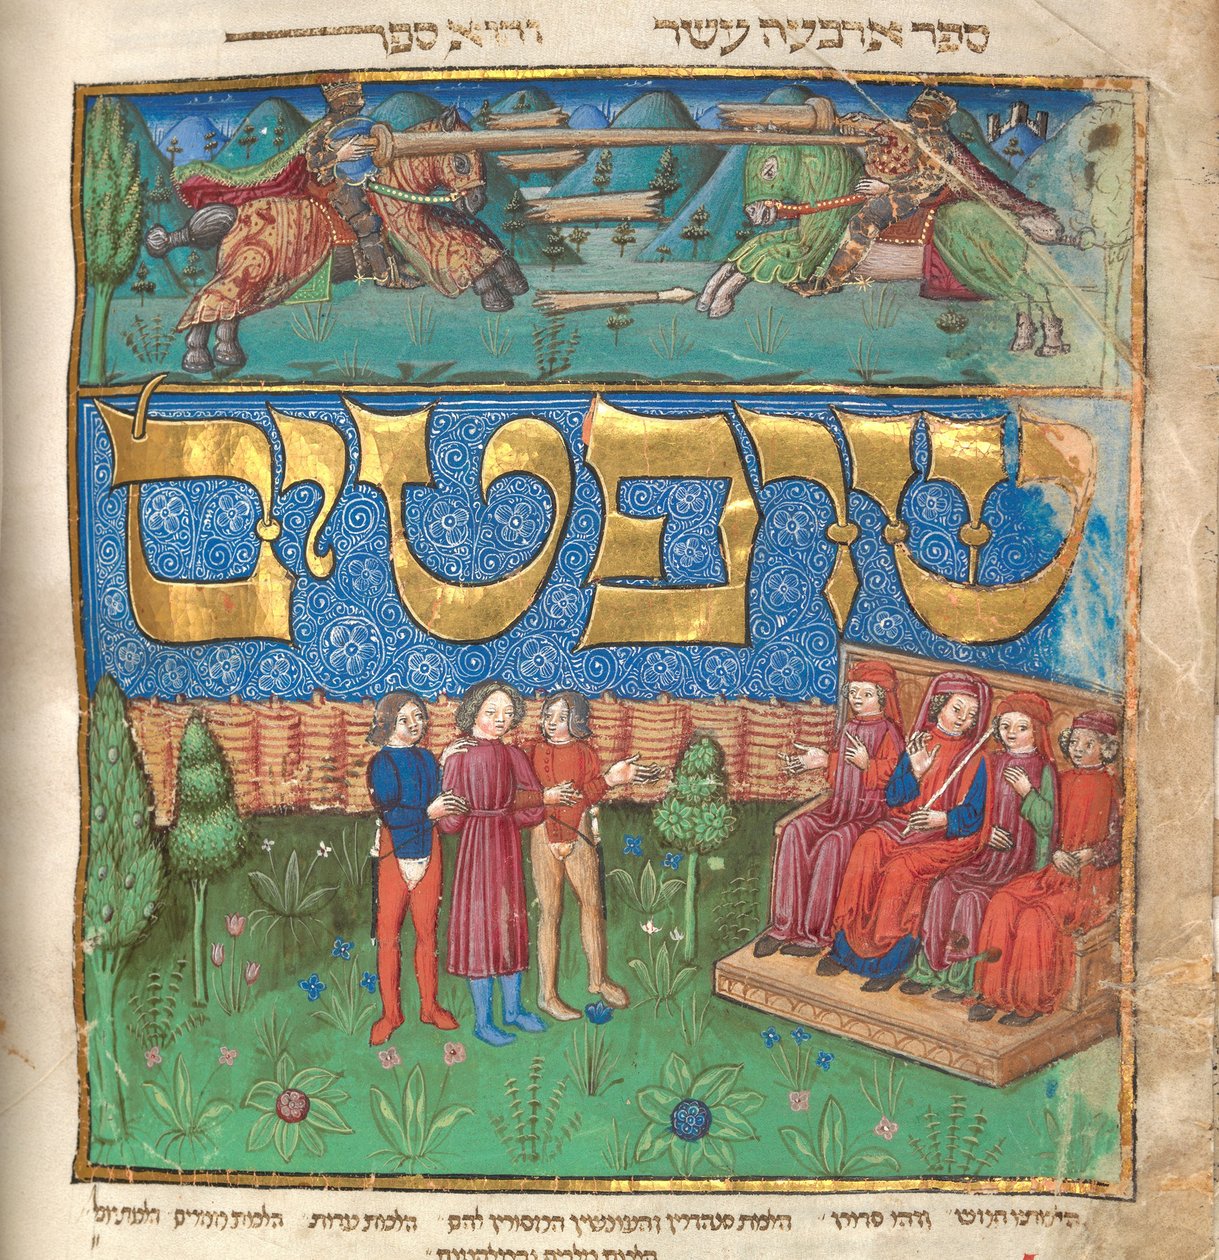 ספר ארבעה עשר והוא ספר
שופטים
הילכותיו חמש וזהו סדורן הלכות סנהדרין והעונשין המסורין להם הלכות עדות הלכות ממרים
הלכות מלכים ומלחמות